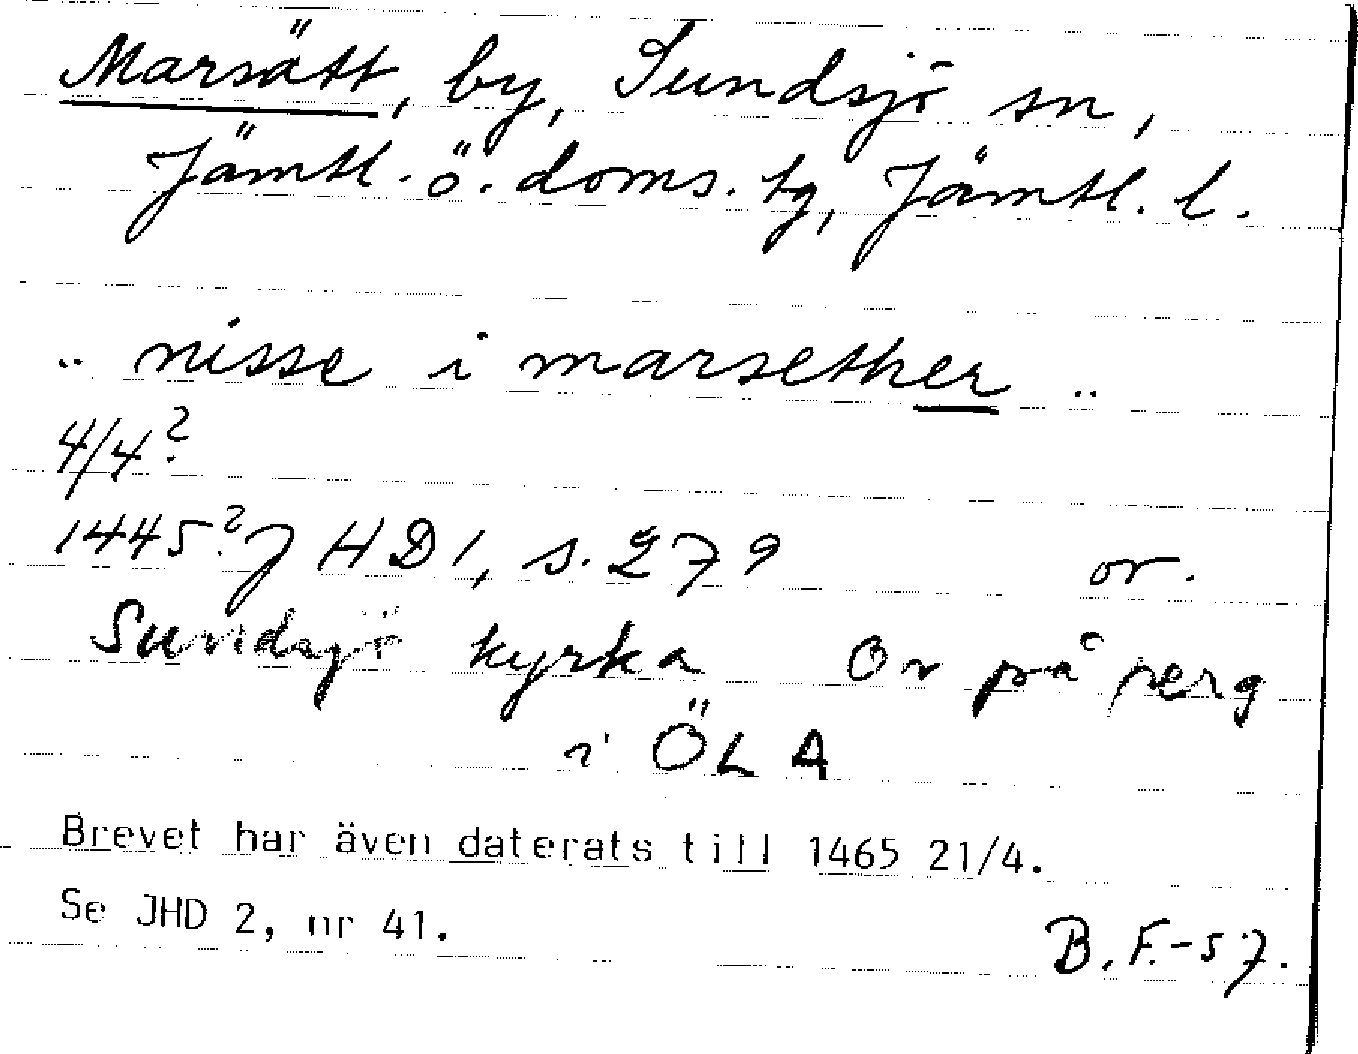 Marsätt, by, Sundsjö sn,
Jämtl. ö. doms. tg, Jämtl. l.
.. nisse i marsether ..
4/4?
1445? JHD 1, s. 279 or.
Sundsjö kyrka Or på perg
i ÖLA
Brevet har även daterats till 1465 21/4.
Se JHD 2, nr 41.
B.F.-57.